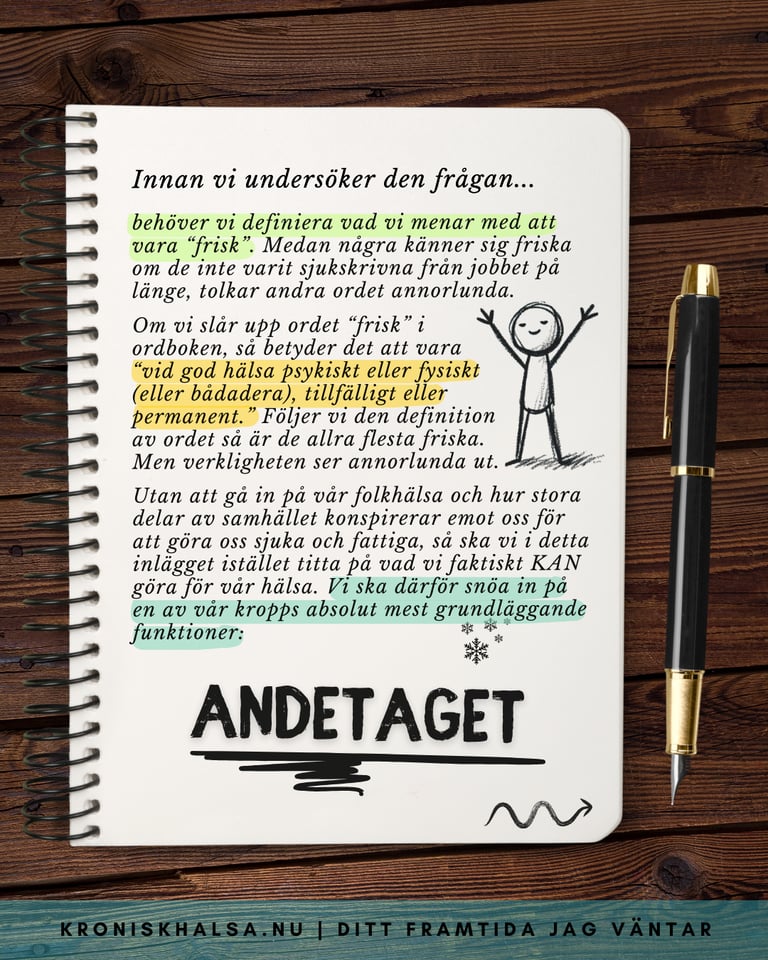 Innan vi undersöker den frågan...
behöver vi definiera vad vi menar med att
vara “frisk”. Medan några känner sig friska
om de inte varit sjukskrivna från jobbet på
länge, tolkar andra ordet annorlunda.
Om vi slår upp ordet “frisk” i
ordboken, så betyder det att vara
“vid god hälsa psykiskt eller fysiskt
(eller bådadera), tillfälligt eller
permanent.” Följer vi den definition
av ordet så är de allra flesta friska.
Men verkligheten ser annorlunda ut.
Utan att gå in på vår folkhälsa och hur stora
delar av samhället konspirerar emot oss för
att göra oss sjuka och fattiga, så ska vi i detta
inlägget istället titta på vad vi faktiskt KAN
göra för vår hälsa. Vi ska därför snöa in på
en av vår kropps absolut mest grundläggande
funktioner:
ANDETAGET
KRONISKHALSA.NU | DITT FRAMTIDA JAG VÄNTAR